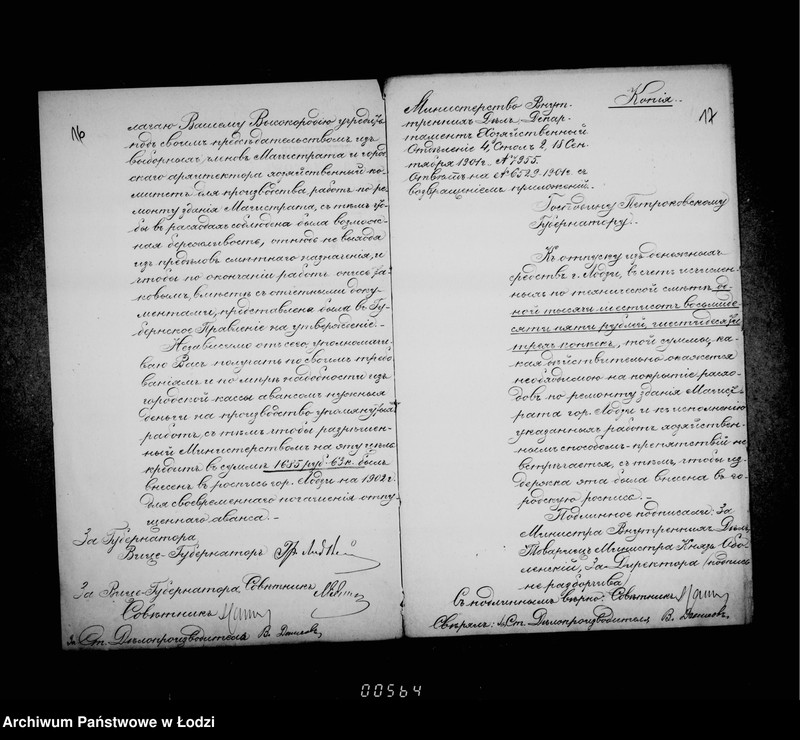 16
лагаю Вашему Высокородію учредить
подъ своимъ предсѣдательствомъ изъ
выборныхъ, членовъ Магистрата и город-
скаго архитектора хозяйственный ко-
митетъ для производства работъ по ре-
монту зданія Магистрата, съ тѣмъ что-
бы въ расходахъ соблюдена была возмож-
ная бережливость, отнюдь не выходя
изъ предѣловъ смѣтнаго назначенія, и
чтобы по окончаніи работъ опись
вмѣстѣ съ отчетными доку-
ментами, представлена была въ Гу-
бернское Правленіе на утвержденіе.-
Независимо отъ сего, уполномачи-
ваю Васъ получать по своимъ требо-
ваніямъ и по мѣрѣ надобности изъ
городской кассы авансомъ нужныя
деньги на производство упомянутыхъ
работъ, съ тѣмъ чтобы разрѣшен-
ный Министерствомъ на эту цѣль
кредитъ въ суммѣ 1685 руб. 63 к. былъ
внесенъ въ роспись гор. Лодзи на 1902 г.
для своевременнаго погашенія отпу-
щеннаго аванса.-
За Губернатора
Вице-Губернаторъ
За Вице-Губернатора Совѣтникъ
Совѣтникъ
За Ст. Дѣлопроизводителя В. Даниловъ
Копія.
17
Министерство Внут-
треннихъ Дѣлъ. Депар-
таментъ Хозяйственный
Отдѣленіе 4, Столъ 2, 18 Сен-
тября 1901 г. № 7955.
Отвѣтъ на № 6529 1901 г. съ
возвращеніемъ приложеній.
Господину Петроковскому
Губернатору.
Къ отпуску изъ денежныхъ
средствъ г. Лодзи, въ счетъ исчислен-
ныхъ по технической смѣтѣ од-
ной тысячи шестисотъ восьмиде-
сяти пяти рублей шестидесяти
трехъ копѣекъ, той суммы, ка-
кая дѣйствительно окажется
необходимою на покрытіе расхо-
довъ по ремонту зданія Магист-
рата гор. Лодзи и къ исполненію
указанныхъ работъ хозяйствен-
нымъ способомъ-препятствій не
встрѣчается, съ тѣмъ, чтобы из-
держка эта была внесена въ го-
родскую роспись.-
Подлинное подписали: За
Министра Внутреннихъ Дѣлъ,
Товарищъ Министра Князь Обо-
ленскій, За Директора (подпись
не разборчива)
Съ подлиннымъ вѣрно: Совѣтникъ
Свѣрялъ: За Ст. Дѣлопроизводителя В. Даниловъ
00564
Archiwum Państwowe w Łodzi